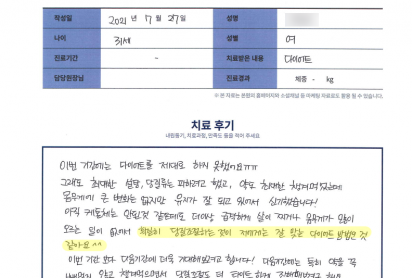 작성일 2021년 7월 27일 성명
나이 31세 성별 여
진료기간 - 치료받은 내용 다이어트
담당원장님 진료경과 체중 - kg
※ 본 자료는 본원의 홈페이지와 소셜채널 등 마케팅 자료로도 활용 될 수 있습니다.
치료 후기
내원동기, 치료과정, 만족도 등을 적어 주세요
이번 기간에는 다이어트를 제대로 하지 못했어요ㅠㅠ
그래도 최대한 설탕, 당질류는 피하려고 했고, 약도 최대한 챙겨먹었는데
몸무게에 큰 변화는 없지만 유지가 잘 되고 있어서 신기했습니다!
아직 케토체는 안된것 같은데도 더이상 급격하게 살이 찌거나 몸무게가 많이
오르는 일이 없어서 확실히 당질조절하는 것이 저에게는 잘 맞는 다이어트 방법인 것
같아요^^
이번 기간 보다 다음기간에 더욱 기대해보려고 합니다! 다음기간에는 특히 약을 꼭